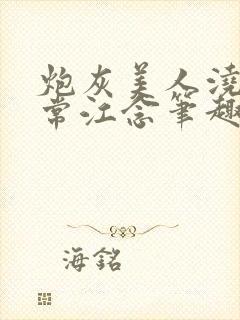 炮灰美人浇
常江念笔趣
海銘